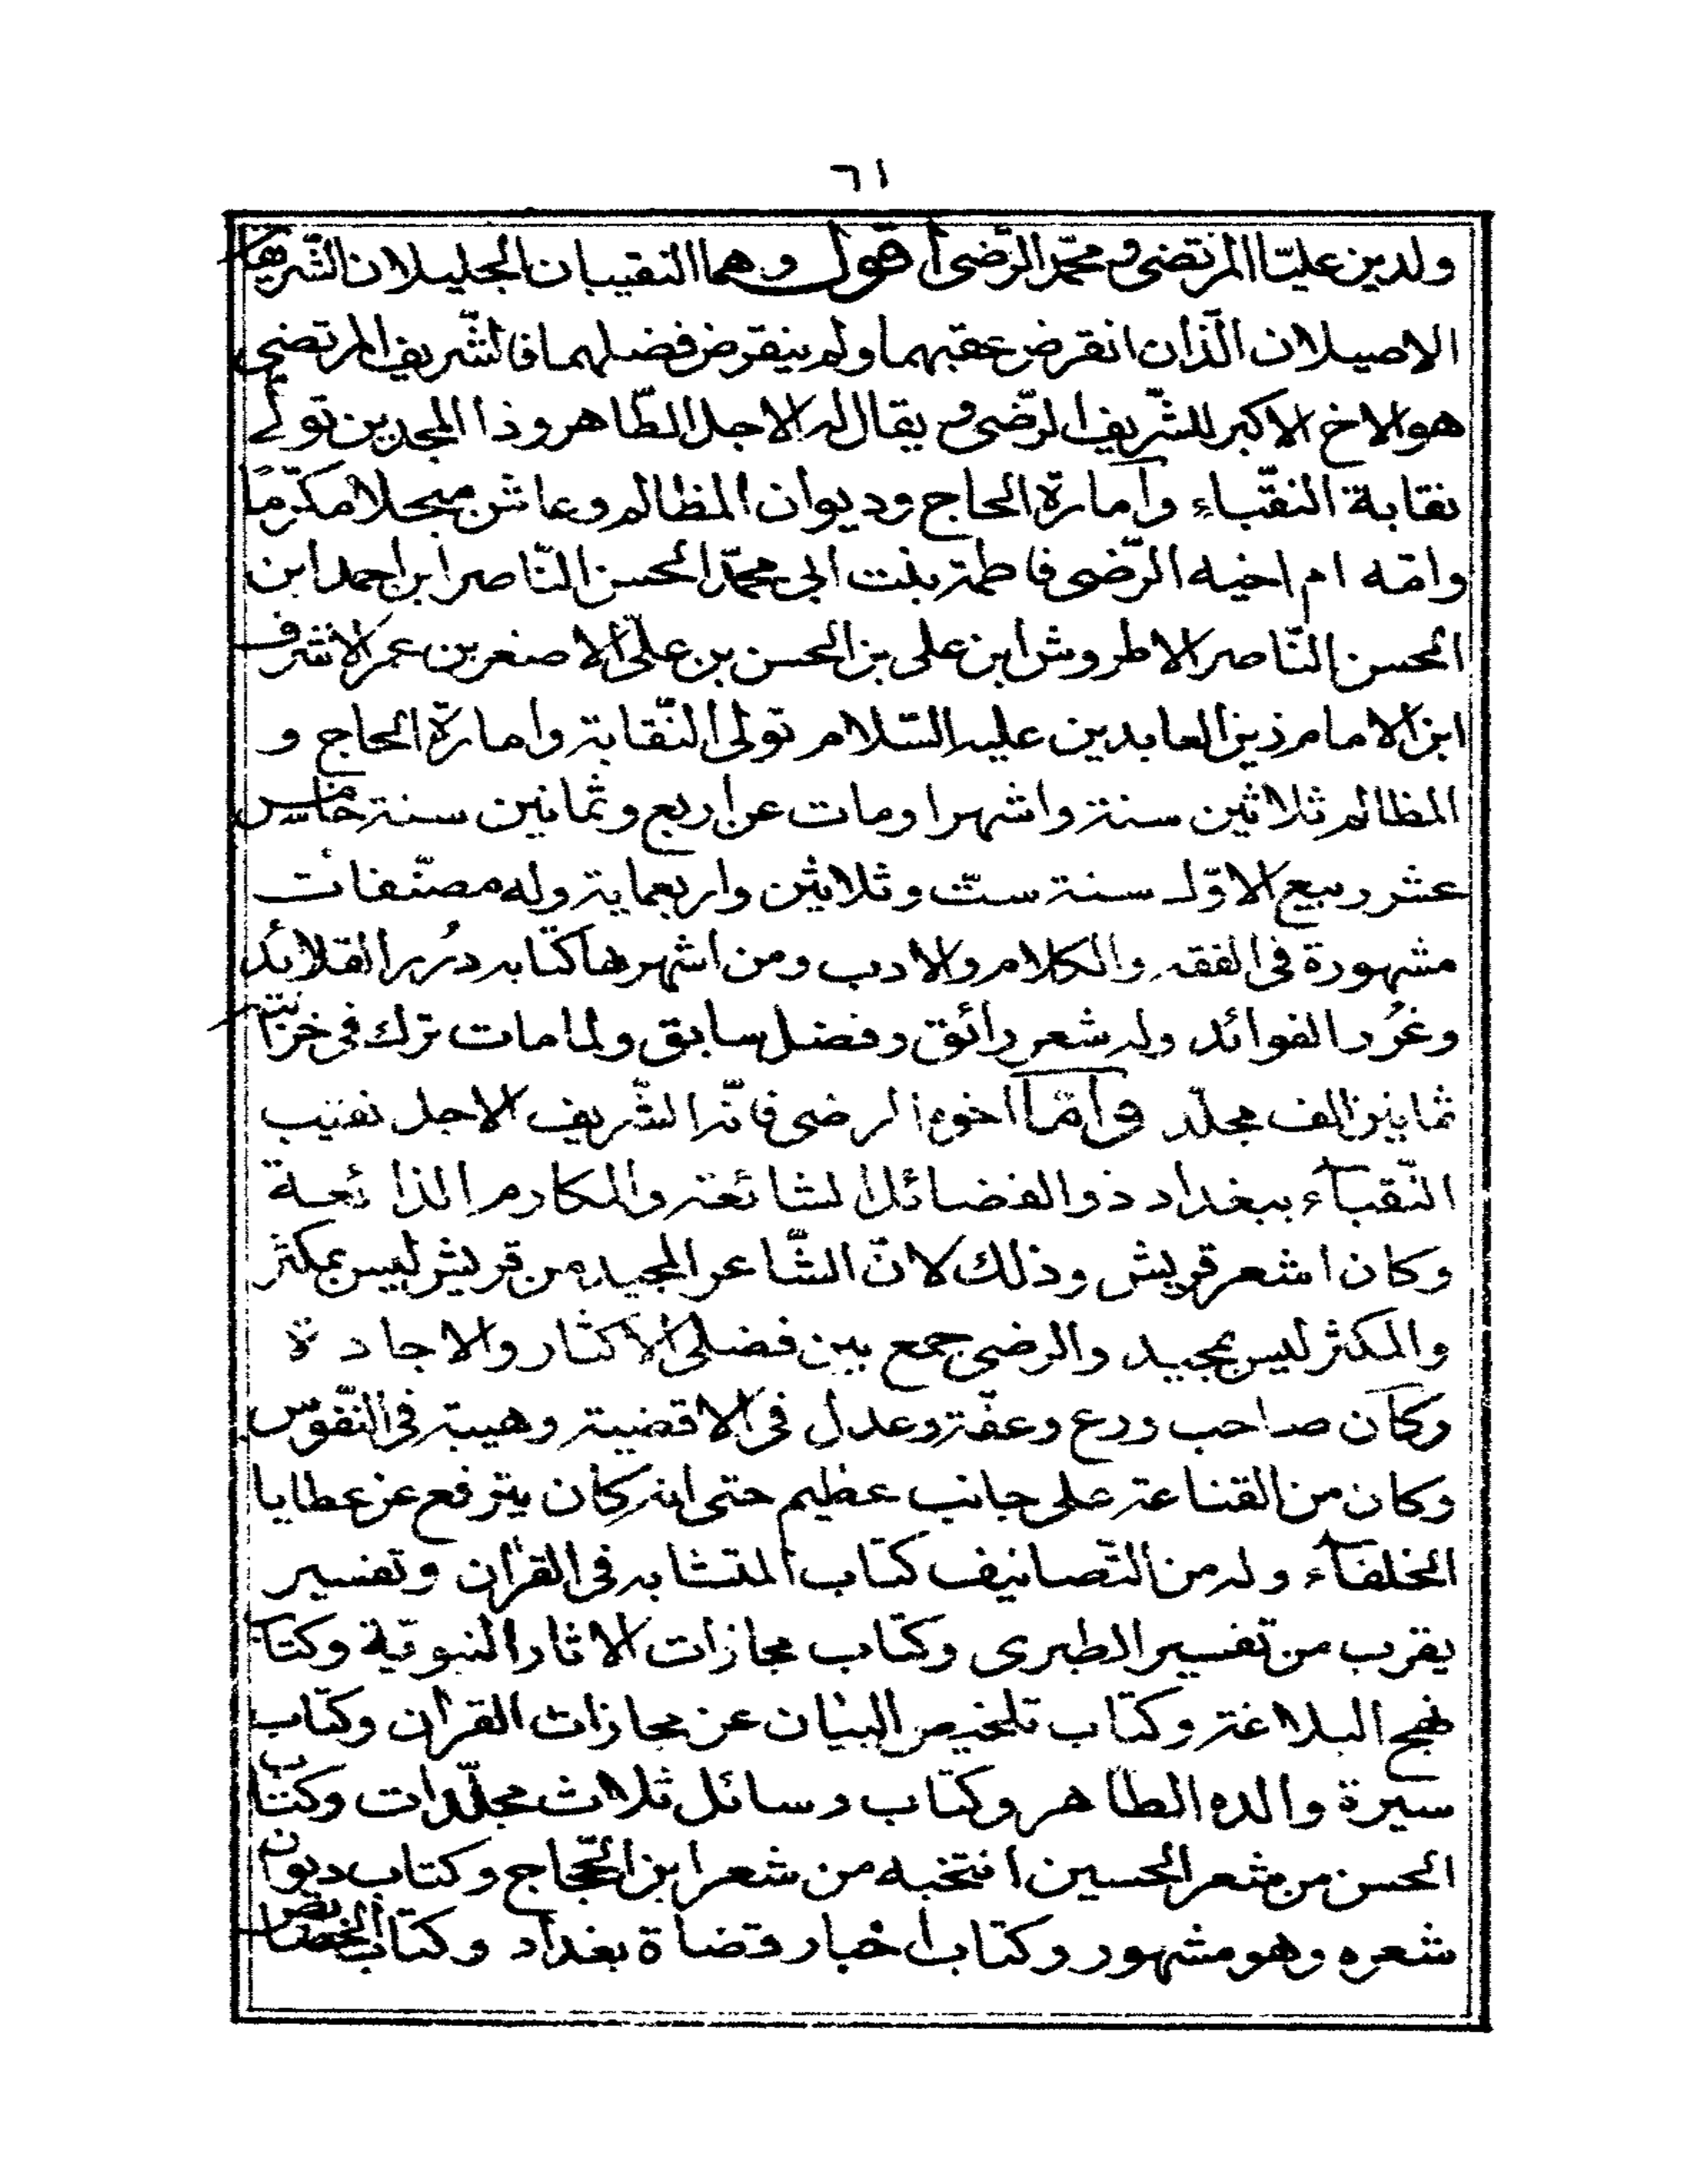 ٦١
ولدين عليّا المرتضى و محمّد الرّضى أقول وهما النقيبان الجليلان الشّريفان
الاصيلان الّذان انقرض عقبهما ولم ينقرض فضلهما فالشّريف المرتضى
هو الاخ الاكبر للشّريف الرّضى و يقال له الاجل الطّاهر وذا المجدين تولّى
نقابة النقّباء وآمارة الحاج وديوان المظالم وعاش مبجلا مكرّمًا
وامّه ام اخيه الرّضى فاطمة بنت ابي محمّد الحسن النّاصر ابن احمد ابن
الحسن النّاصر الاطروش ابن على بن الحسن بن علىّ الاصغر بن عمر الاشرف
ابن الامام زين العابدين عليه السّلام تولى النّقابة وامارة الحاج و
المظالم ثلاثين سنة واشهرا ومات عن اربع وثمانين سنة خامس
عشر ربيع الاوّل سنة ستّ وثلاثين واربعماية وله مصنّفات
مشهورة فى الفقه والكلام والادب ومن اشهرها كتابه دُرر القلائد
وغُرر الفوائد وله شعر رائق وفضل سابق ولما مات ترك فى خزانته
ثمانين الف مجلّد وامّا اخوه الرضى فانّه الشّريف الاجل نقيب
النّقبآء ببغداد ذو الفضائل الشائعة والمكارم الذائعة
وكان اشعر قريش وذلك لانّ الشّاعر المجيد من قريش ليس بمكثر
والمكثر ليس بمجيد والرضى جمع بين فضلى الاكثار والاجادة
وكان صاحب ورع وعفّة وعدل فى الاقضية وهيبة فى النّفوس
وكان من القناعة على جانب عظيم حتى انه كان يترفع عن عطايا
الخلفآء وله من التّصانيف كتاب المتشابه فى القرآن وتفسير
يقرب من تفسير الطبرى وكتاب مجازات الاثار النبويّة وكتاب
نهج البلاغة وكتاب تلخيص البيان عن مجازات القرآن وكتاب
سيرة والده الطاهر وكتاب رسائل ثلاث مجلّدات وكتاب
الحسن من شعر الحسين انتخبه من شعر ابن الحجّاج وكتاب ديوان
شعره وهو مشهور وكتاب اخبار قضاة بغداد وكتاب الخصائص